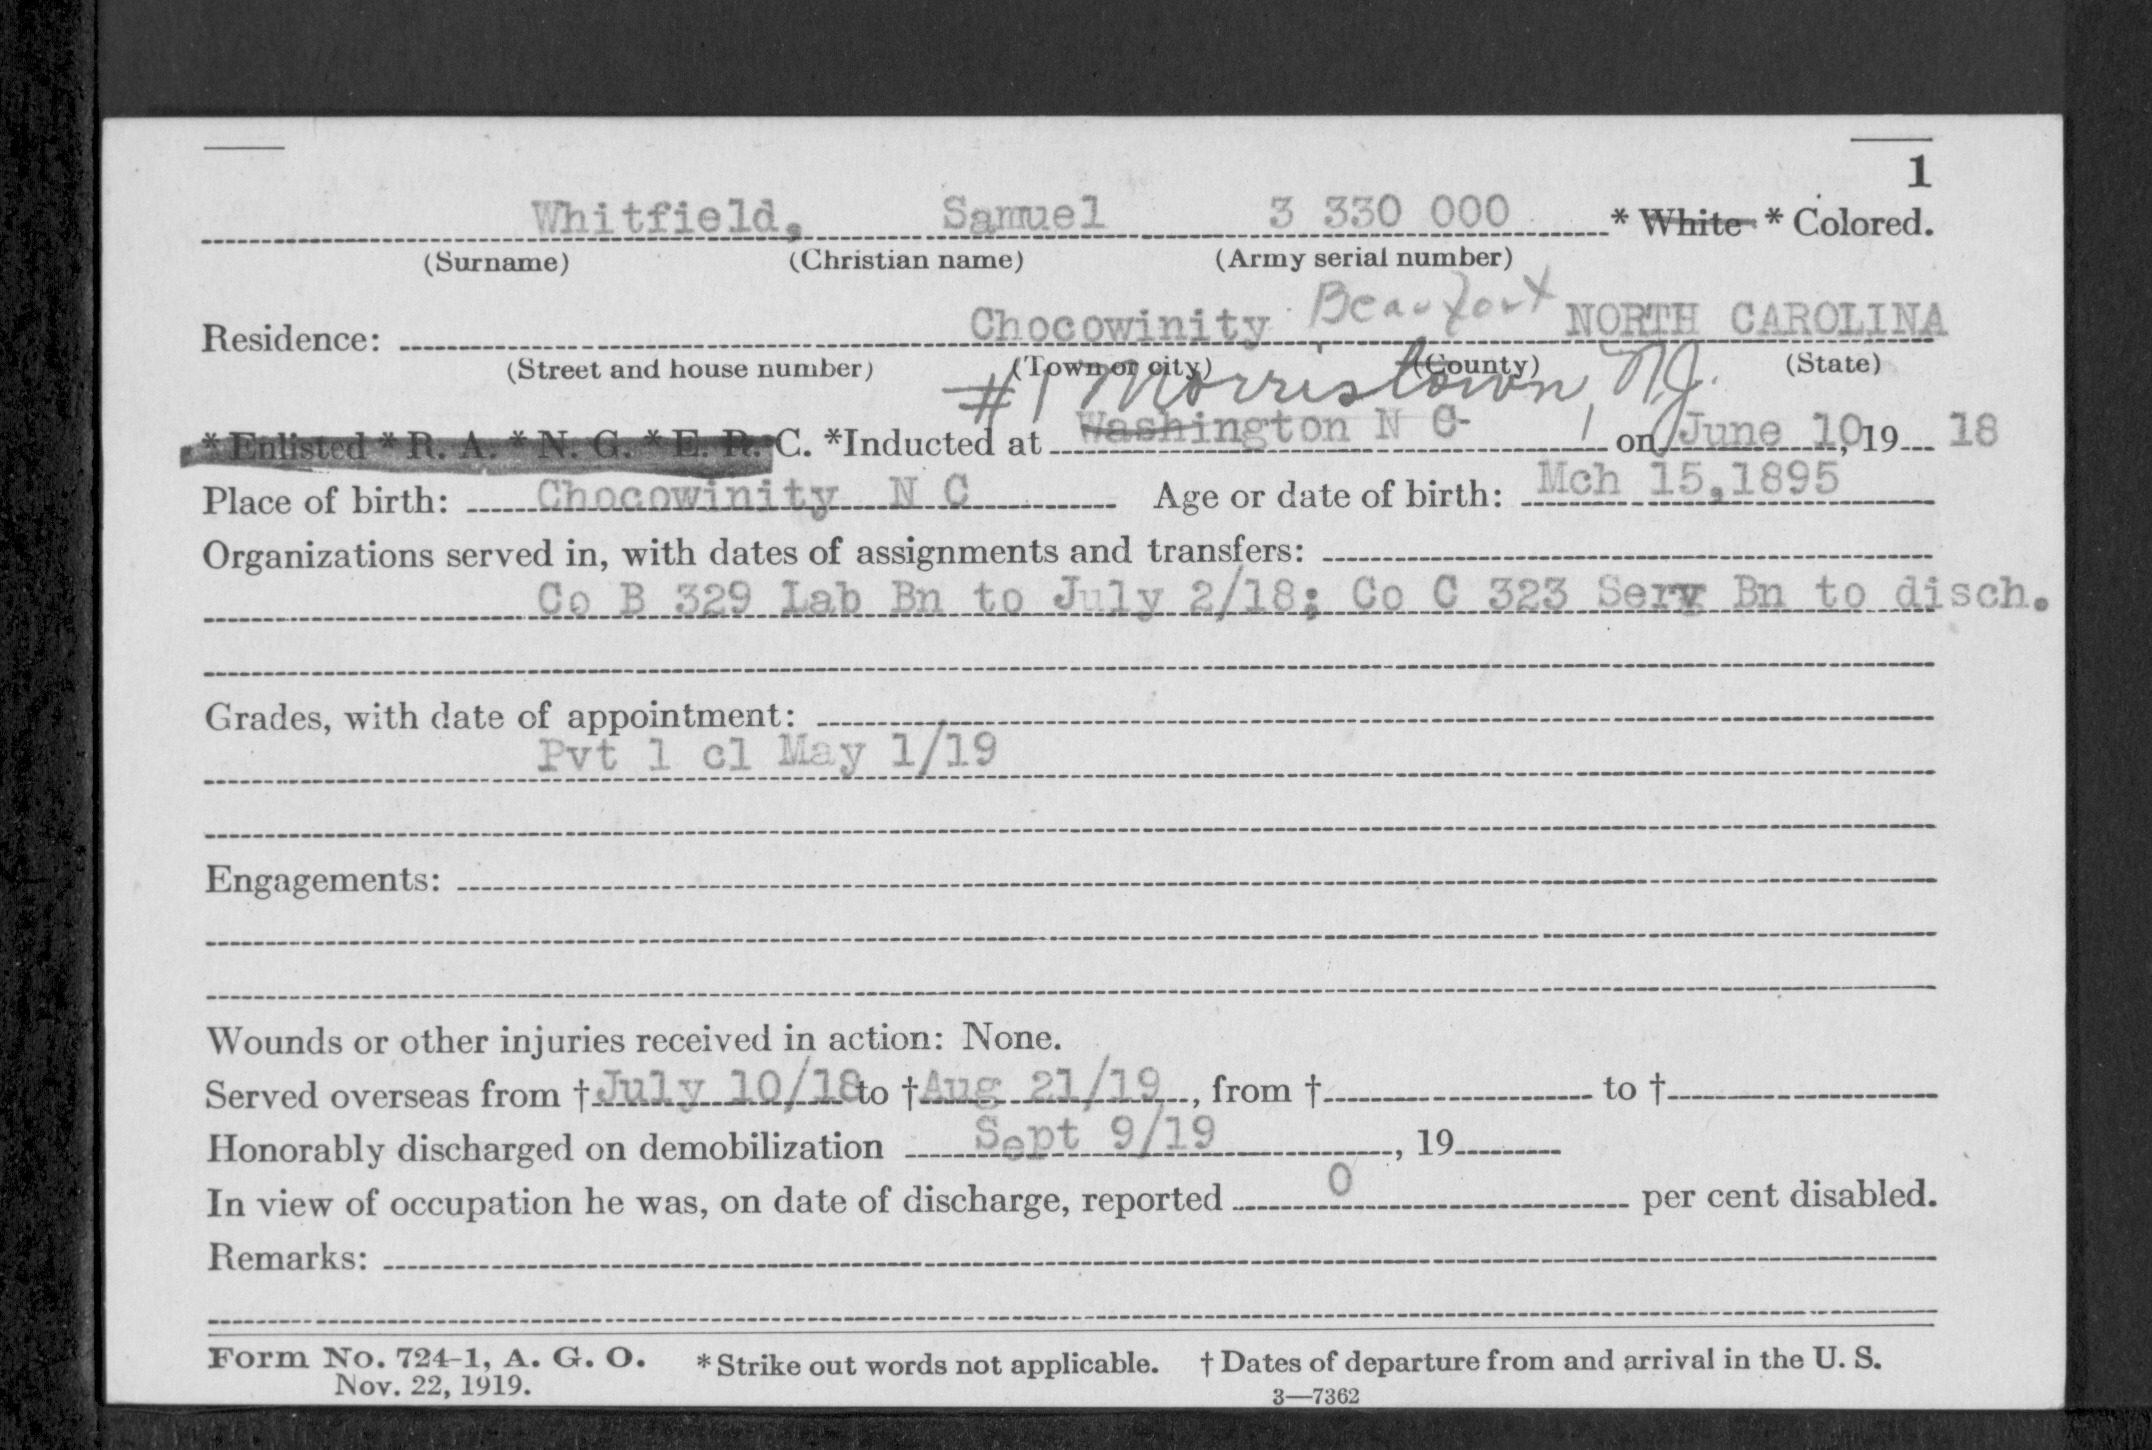 1
Whitfield, Samuel 3 330 000 * White * Colored.
(Surname) (Christian name) (Army serial number)
Residence: Chocowinity Beaufort NORTH CAROLINA
(Street and house number) (Town or city) (County) (State)
#1 Morristown, N.J.
* Enlisted * R. A. * N. G. * E. R. C. *Inducted at Washington N C on June 10, 19 18
Place of birth: Chocowinity N C Age or date of birth: Mch 15,1895
Organizations served in, with dates of assignments and transfers:
Co B 329 Lab Bn to July 2/18; Co C 323 Serv Bn to disch.
Grades, with date of appointment:
Pvt 1 cl May 1/19
Engagements:
Wounds or other injuries received in action: None.
Served overseas from † July 10/18 to † Aug 21/19, from † to †
Honorably discharged on demobilization Sept 9/19, 19
In view of occupation he was, on date of discharge, reported 0 per cent disabled.
Remarks:
Form No. 724-1, A. G. O. * Strike out words not applicable. † Dates of departure from and arrival in the U. S.
Nov. 22, 1919. 3—7362